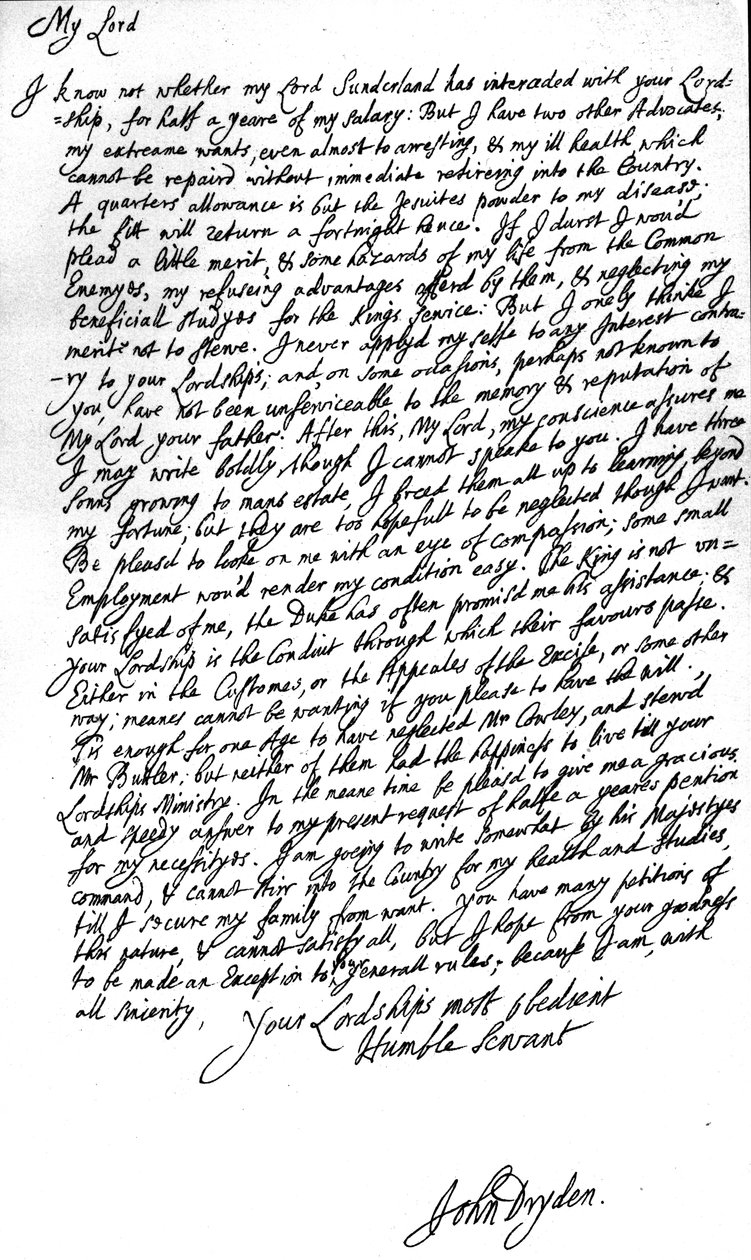 My Lord
I know not whether my Lord Sunderland has interceded with your Lord-
=ship, for half a yeare of my salary: But I have two other Advocates,
my extreame wants, even almost to arresting, & my ill health, which
cannot be repaird without immediate retireing into the Country.
A quarters allowance is but the Jesuites powder to my disease;
the fitt will return a fortnight hence. If I durst I wou'd
plead a little merit, & some hazards of my life from the Common
Enemyes, my refuseing advantages offerd by them, & neglecting my
beneficiall studyes for the Kings service: But I onely thinke I
merit not to sterve. I never applyd my selfe to any Interest contra=
-ry to your Lordship's; and, on some occasions, perhaps not known to
you, have not been unserviceable to the memory & reputation of
My Lord your father. After this, My Lord, my conscience assures me
I may write boldly, though I cannot speake to you. I have three
Sonns growing to mans estate, I breed them all up to learning, beyond
my fortune; but they are too hopefull to be neglected though I want.
Be pleasd to looke on me with an eye of compassion; some small
Employment wou'd render my condition easy. The King is not un=
satisfyed of me, the Duke has often promisd me his assistance; &
your Lordship is the Conduit through which their favours passe.
Either in the Customes, or the Appeales of the Excise, or some other
way; meanes cannot be wanting if you please to have the will.
Tis enough for one Age to have neglected Mr Cowley, and sterv'd
Mr Buttler; but neither of them had the happiness to live till your
Lordships Ministry. In the meane time be pleasd to give me a gracious
and speedy answer to my present request of halfe a yeares pention
for my necessityes. I am goeing to write somewhat by his Majestyes
command, & cannot stirr into the Country for my health and studies,
till I secure my family from want. You have many petitions of
this nature, & cannot satisfy all, but I hope from your goodness
to be made an Exception to your generall rules; because I am, with
all sincerity,
Your Lordships most obedient
Humble Servant
John Dryden.